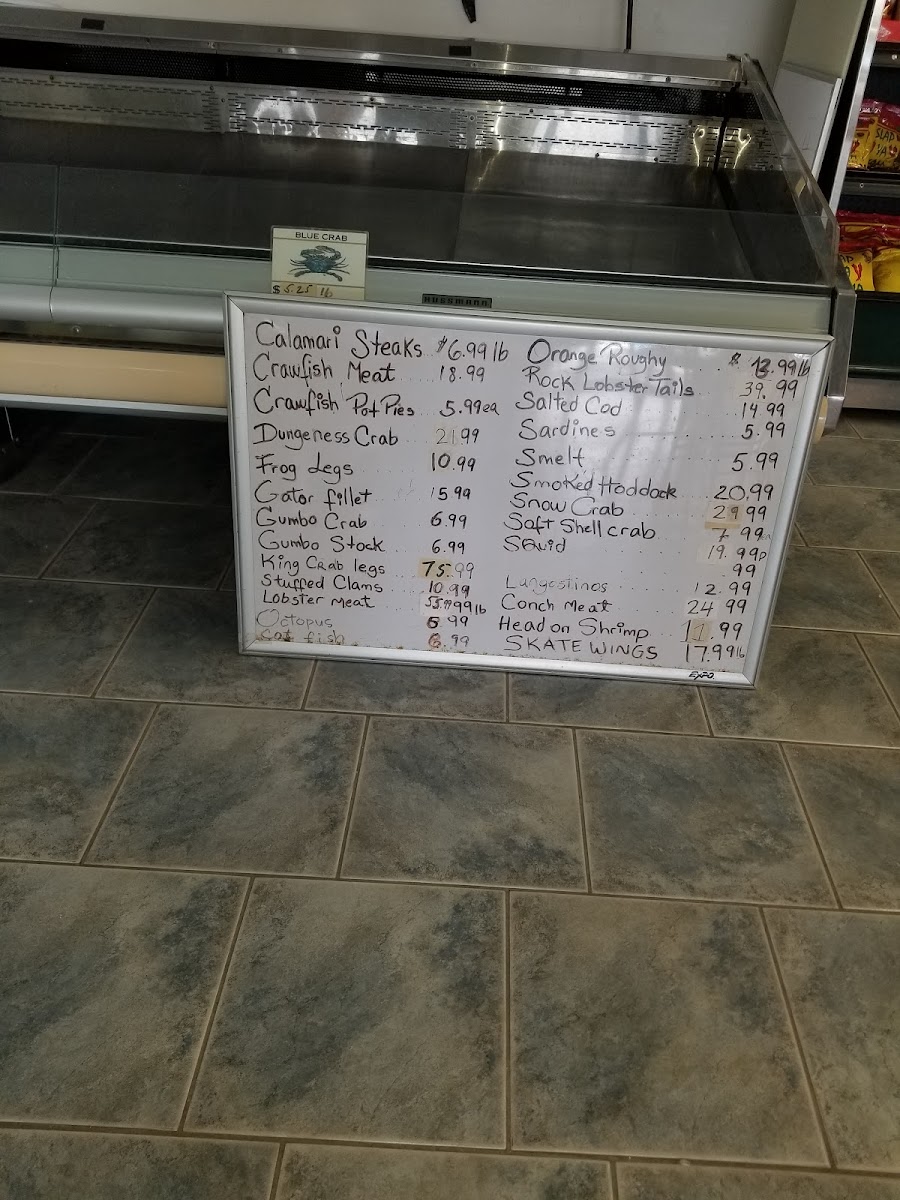 BLUE CRAB
$ 5.25 lb
HUSSMANN
Calamari Steaks $6.99 lb
Crawfish Meat 18.99
Crawfish Pot Pies 5.99 ea
Dungeness Crab 21.99
Frog Legs 10.99
Gator fillet 15.99
Gumbo Crab 6.99
Gumbo Stock 6.99
King Crab legs 75.99
Stuffed Clams 10.99
Lobster meat 99 lb
Octopus 6.99
Cat fish 6.99
Orange Roughy $ 99 lb
Rock Lobster Tails 39.99
Salted Cod 14.99
Sardines 5.99
Smelt 5.99
Smoked Haddock 20.99
Snow Crab 29.99
Soft Shell crab 7.99
Squid 19.99
.99
Langostinos 12.99
Conch Meat 24 99
Head on Shrimp 11.99
SKATE WINGS 17.99 lb
EXPO
SLAP
YA